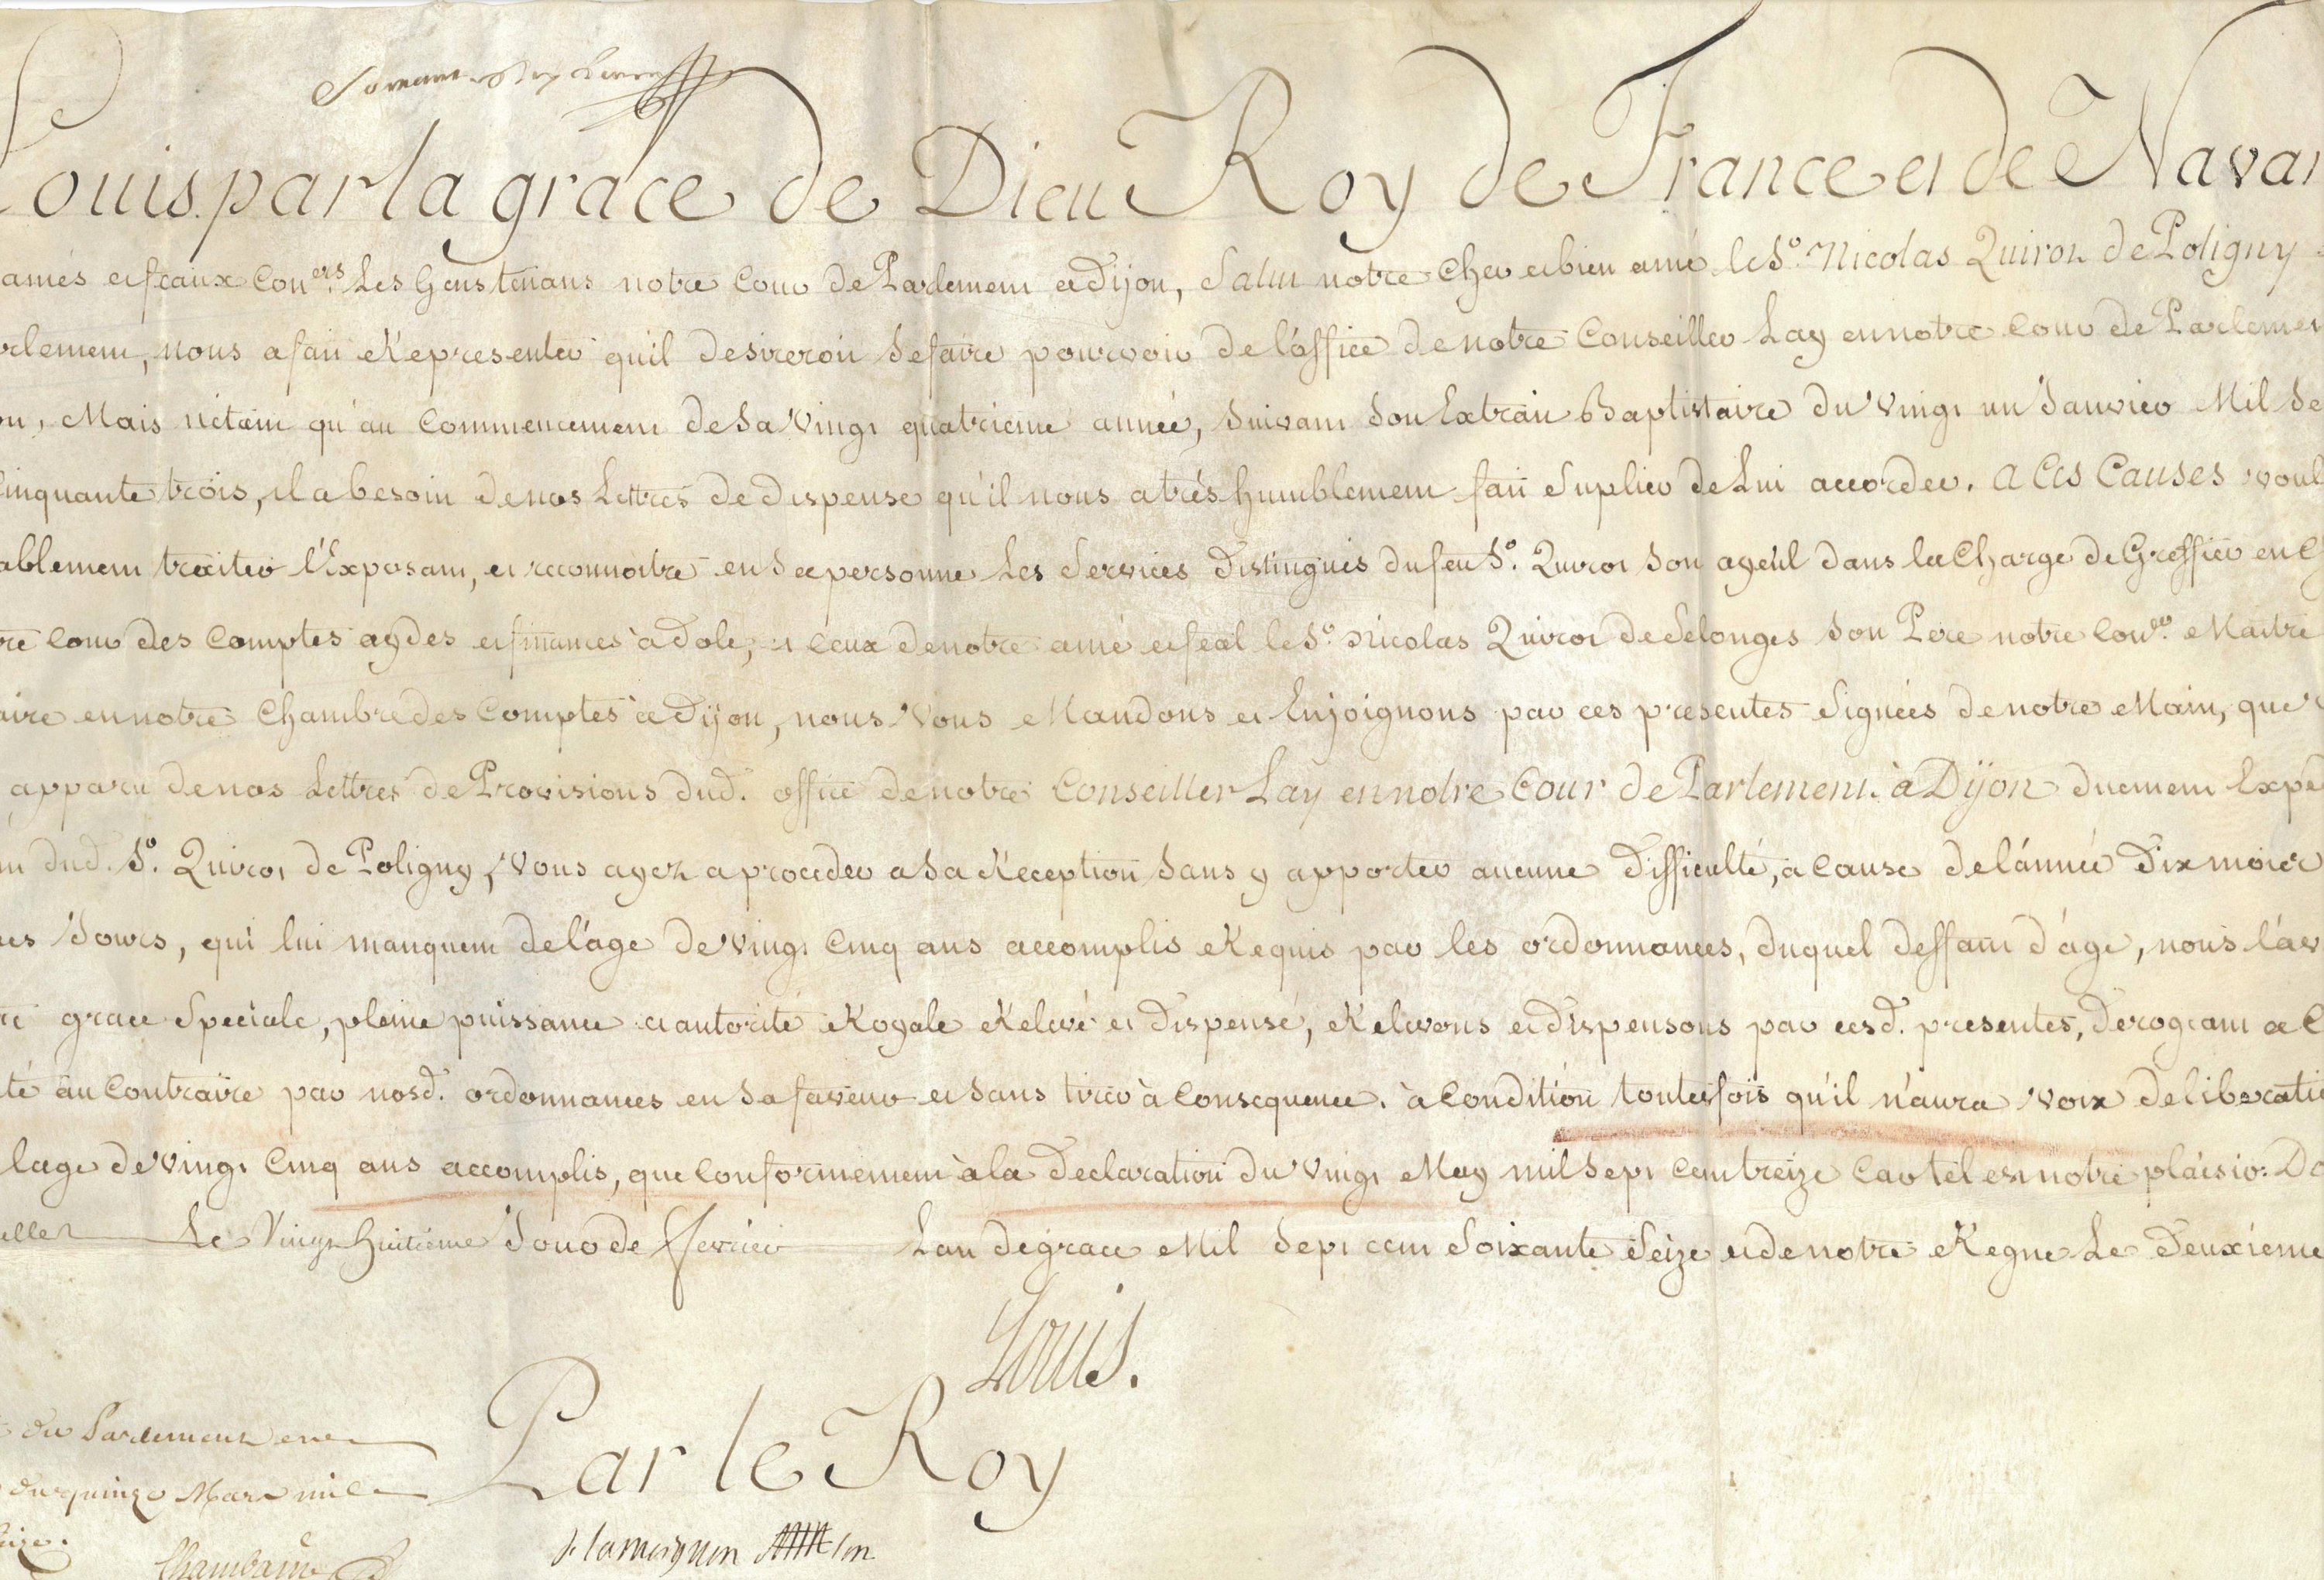 Louis par la grace de Dieu Roy de France et de Navar
amés et feaux Con.ers Les Gens tenans notre Cour de Parlement a Dijon, Salut notre cher et bien amé le S.r Nicolas Quirot de Poligny
rlement, nous a fait Representer qu'il desireroit se faire pourvoir de l'office de notre Conseiller Lay en notre Cour de Parlemen
on, Mais n'étant qu'au Commencement de Sa Vingt quatrieme année, Suivant Son Extrait Baptistaire du Vingt un Janvier Mil Se
Cinquante trois, il a besoin de nos Lettres de dispense qu'il nous a trés humblement fait Suplier de Lui accorder. A Ces Causes voul
ablement traiter l'Exposant, et reconnoitre en Sa personne Les Services Distingués du feu S.r Quirot Son ayeul dans la Charge de Greffier en C
re Cour des Comptes aydes et finances à Dole, et Ceux de notre amé et feal le S.r Nicolas Quirot de Selonges Son Pere notre Con.er Maitre
aire en notre Chambre des Comptes à Dijon, nous Vous Mandons et Enjoignons par ces presentes Signées de notre Main, que
apparu de nos Lettres de Provisions dud. office de notre Conseiller Lay en notre Cour de Parlement à Dijon duement Expe
dud. S.r Quirot de Poligny, Vous ayez a proceder a Sa Reception Sans y apporter aucune Difficulté, à Cause de l'année Dix mois
es Jours, qui lui manquent de l'age de Vingt Cinq ans accomplis Requis par les ordonnances, duquel deffaut d'age, nous l'av
re grace Speciale, pleine puissance et autorité Royale Relevé et Dispensé, Relevons et dispensons par cesd. presentes, derogeant a C
té au Contraire par nosd. ordonnances en Sa faveur et Sans tirer à Consequence. à Condition toutesfois qu'il n'aura Voix deliberati
l'age de Vingt Cinq ans accomplis, que Conformement à la Declaration du Vingt May mil Sept Cent treize Car tel est notre plaisir: Do
illes Le Vingt Huitieme Jour de Fevrier L'an de grace Mil Sept cent Soixante Seize et de notre Regne Le Deuxiéme
Louis.
Par le Roy
du Parlement
du quinze Mars mil